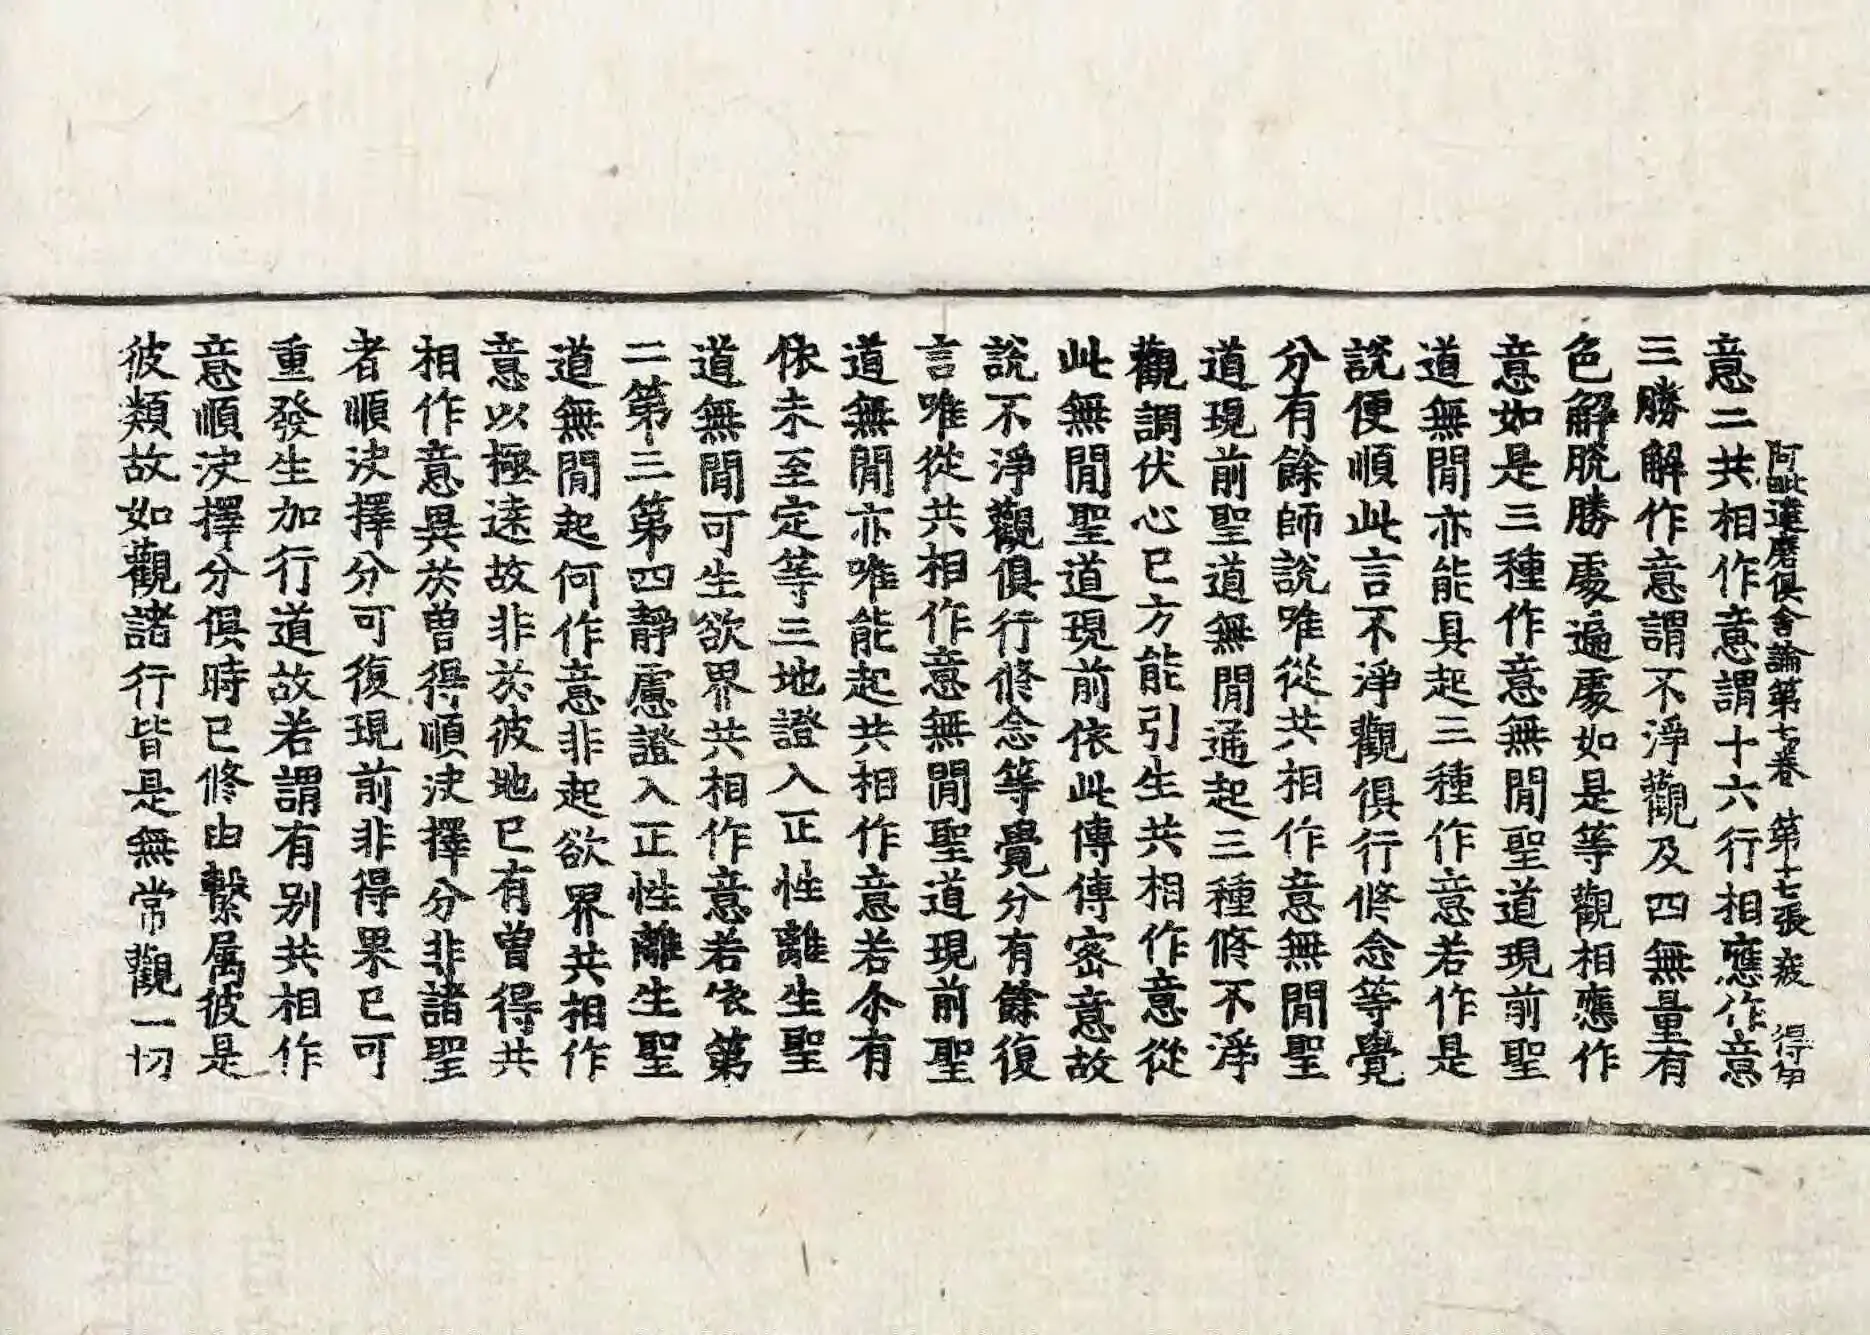 阿毗達磨俱舍論第七卷 第十七張 疲 得伊
意二共相作意謂十六行相應作意
三勝解作意謂不淨觀及四無量有
色解脫勝處遍處如是等觀相應作
意如是三種作意無間聖道現前聖
道無間亦能具起三種作意若作是
說便順此言不淨觀俱行修念等覺
分有餘師說唯從共相作意無間聖
道現前聖道無間通起三種修不淨
觀調伏心已方能引生共相作意從
此無間聖道現前依此傳傳密意故
說不淨觀俱行修念等覺分有餘復
言唯從共相作意無間聖道現前聖
道無間亦唯能起共相作意若尒有
依未至定等三地證入正性離生聖
道無間可生欲界共相作意若依第
二第三第四靜慮證入正性離生聖
道無間起何作意非起欲界共相作
意以極遠故非於彼地已有曾得共
相作意異於曾得順決擇分非諸聖
者順決擇分可復現前非得果已可
重發生加行道故若謂有別共相作
意順決擇分俱時已修由繫屬彼是
彼類故如觀諸行皆是無常觀一切